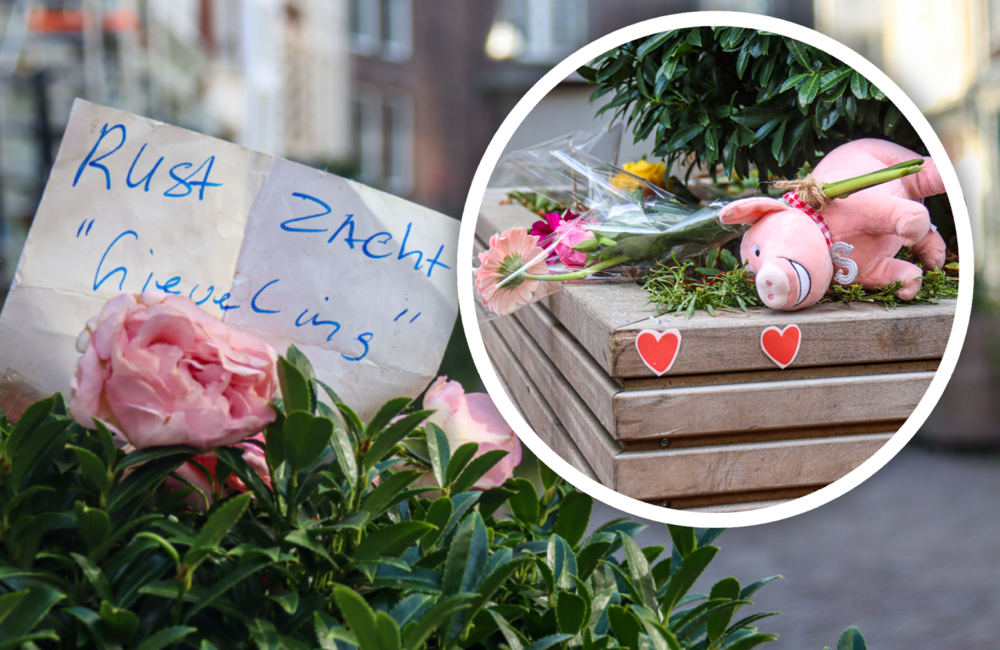 Rust Zacht
"Lieveling"
S